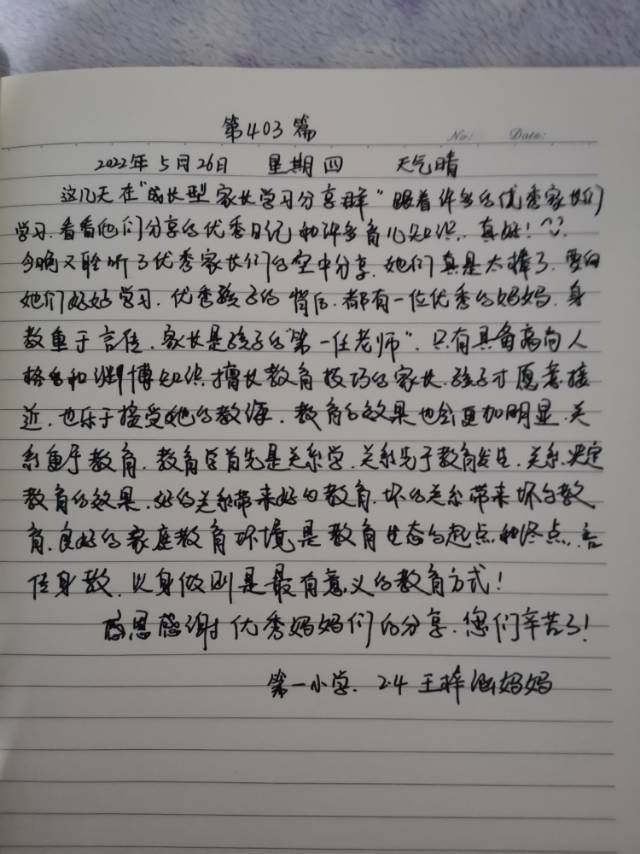 第403篇
No: Date:
2022年5月26日 星期四 天气晴
这几天在"成长型家长学习分享群"跟着许多的优秀家长们
学习.看看他们分享的优秀日记和许多育儿知识.真好!
今晚又聆听了优秀家长们的空中分享.她们真是太棒了.要向
她们好好学习.优秀孩子的背后.都有一位优秀的妈妈.身
教重于言传.家长是孩子的"第一任老师".只有具备高尚人
格和渊博知识.擅长教育技巧的家长.孩子才愿意接
近.也乐于接受她的教诲.教育的效果也会更加明显.关
系重于教育.教育学首先是关系学.关系先于教育发生.关系决定
教育的效果.好的关系带来好的教育.坏的关系带来坏的教
育.良好的家庭教育环境是教育生态的起点和终点.言
传身教.以身做则是最有意义的教育方式!
感恩感谢优秀妈妈们的分享.您们辛苦了!
第一小学.2.4王梓涵妈妈